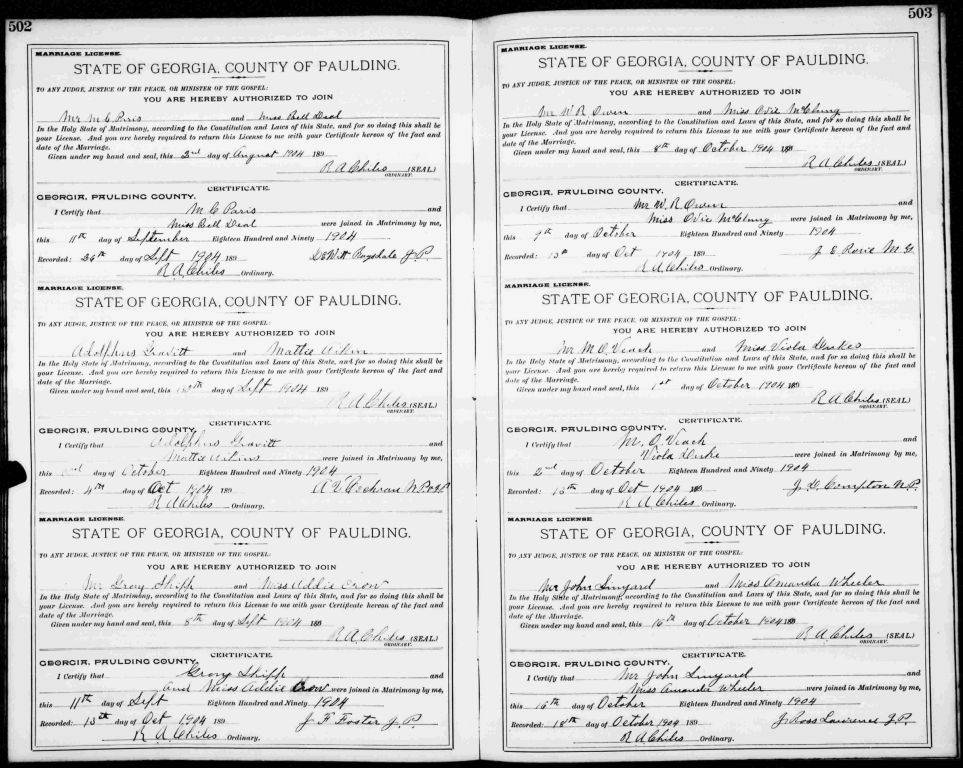 502
MARRIAGE LICENSE.
STATE OF GEORGIA, COUNTY OF PAULDING.
TO ANY JUDGE, JUSTICE OF THE PEACE, OR MINISTER OF THE GOSPEL:
YOU ARE HEREBY AUTHORIZED TO JOIN
Mr M C Paris and Miss Bell Deal
In the Holy State of Matrimony, according to the Constitution and Laws of this State, and for so doing this shall be
your License. And you are hereby required to return this License to me with your Certificate hereon of the fact and
date of the Marriage.
Given under my hand and seal, this 2nd day of August 1904 189
R A Chiles (SEAL)
ORDINARY.
CERTIFICATE.
GEORGIA, PAULDING COUNTY.
I Certify that M C Paris and
Miss Bell Deal were joined in Matrimony by me,
this 11th day of September Eighteen Hundred and Ninety 1904
Recorded: 26th day of Sept 1904 189 DeWitt Ragsdale J P
R A Chiles Ordinary.
MARRIAGE LICENSE.
STATE OF GEORGIA, COUNTY OF PAULDING.
TO ANY JUDGE, JUSTICE OF THE PEACE, OR MINISTER OF THE GOSPEL:
YOU ARE HEREBY AUTHORIZED TO JOIN
Adolphus Gravitt and Mattie
In the Holy State of Matrimony, according to the Constitution and Laws of this State, and for so doing this shall be
your License. And you are hereby required to return this License to me with your Certificate hereon of the fact and
date of the Marriage.
Given under my hand and seal, this day of Sept 1904 189
R A Chiles (SEAL)
ORDINARY.
CERTIFICATE.
GEORGIA, PAULDING COUNTY.
I Certify that Adolphus Gravitt and
Mattie were joined in Matrimony by me,
this day of October Eighteen Hundred and Ninety 1904
Recorded: 4th day of Oct 1904 189 Cochran
R A Chiles Ordinary.
MARRIAGE LICENSE.
STATE OF GEORGIA, COUNTY OF PAULDING.
TO ANY JUDGE, JUSTICE OF THE PEACE, OR MINISTER OF THE GOSPEL:
YOU ARE HEREBY AUTHORIZED TO JOIN
Mr Grory Shipp and Miss Addie Crow
In the Holy State of Matrimony, according to the Constitution and Laws of this State, and for so doing this shall be
your License. And you are hereby required to return this License to me with your Certificate hereon of the fact and
date of the Marriage.
Given under my hand and seal, this 8th day of Sept 1904 189
R A Chiles (SEAL)
ORDINARY.
CERTIFICATE.
GEORGIA, PAULDING COUNTY.
I Certify that Grory Shipp
and Miss Addie Crow were joined in Matrimony by me,
this 11th day of Sept Eighteen Hundred and Ninety 1904
Recorded: 13th day of Oct 1904 189 J F Foster J. P.
R A Chiles Ordinary.
503
MARRIAGE LICENSE.
STATE OF GEORGIA, COUNTY OF PAULDING.
TO ANY JUDGE, JUSTICE OF THE PEACE, OR MINISTER OF THE GOSPEL:
YOU ARE HEREBY AUTHORIZED TO JOIN
Mr W R Owen and Miss Ovie McClung
In the Holy State of Matrimony, according to the Constitution and Laws of this State, and for so doing this shall be
your License. And you are hereby required to return this License to me with your Certificate hereon of the fact and
date of the Marriage.
Given under my hand and seal, this 8th day of October 1904 189
R A Chiles (SEAL)
ORDINARY.
CERTIFICATE.
GEORGIA, PAULDING COUNTY.
I Certify that Mr W. R Owen and
Miss Ovie McClung were joined in Matrimony by me,
this 9th day of October Eighteen Hundred and Ninety 1904
Recorded: 13th day of Oct 1904 189 J E M G
R A Chiles Ordinary.
MARRIAGE LICENSE.
STATE OF GEORGIA, COUNTY OF PAULDING.
TO ANY JUDGE, JUSTICE OF THE PEACE, OR MINISTER OF THE GOSPEL:
YOU ARE HEREBY AUTHORIZED TO JOIN
Mr. M. O. Veach and Miss Viola
In the Holy State of Matrimony, according to the Constitution and Laws of this State, and for so doing this shall be
your License. And you are hereby required to return this License to me with your Certificate hereon of the fact and
date of the Marriage.
Given under my hand and seal, this 1st day of October 1904 189
R A Chiles (SEAL)
ORDINARY.
CERTIFICATE.
GEORGIA, PAULDING COUNTY.
I Certify that M. O. Veach and
Viola were joined in Matrimony by me,
this 2nd day of October Eighteen Hundred and Ninety 1904
Recorded: 13th day of Oct 1904 189 Compton N. P.
R A Chiles Ordinary.
MARRIAGE LICENSE.
STATE OF GEORGIA, COUNTY OF PAULDING.
TO ANY JUDGE, JUSTICE OF THE PEACE, OR MINISTER OF THE GOSPEL:
YOU ARE HEREBY AUTHORIZED TO JOIN
Mr John Linyard and Miss Amanda Wheeler
In the Holy State of Matrimony, according to the Constitution and Laws of this State, and for so doing this shall be
your License. And you are hereby required to return this License to me with your Certificate hereon of the fact and
date of the Marriage.
Given under my hand and seal, this 16th day of October 1904 189
R A Chiles (SEAL)
ORDINARY.
CERTIFICATE.
GEORGIA, PAULDING COUNTY.
I Certify that Mr John Linyard and
Miss Amanda Wheeler were joined in Matrimony by me,
this 16th day of October Eighteen Hundred and Ninety 1904
Recorded: 18th day of October 1904 189 J Ross Lawrence J P
R A Chiles Ordinary.